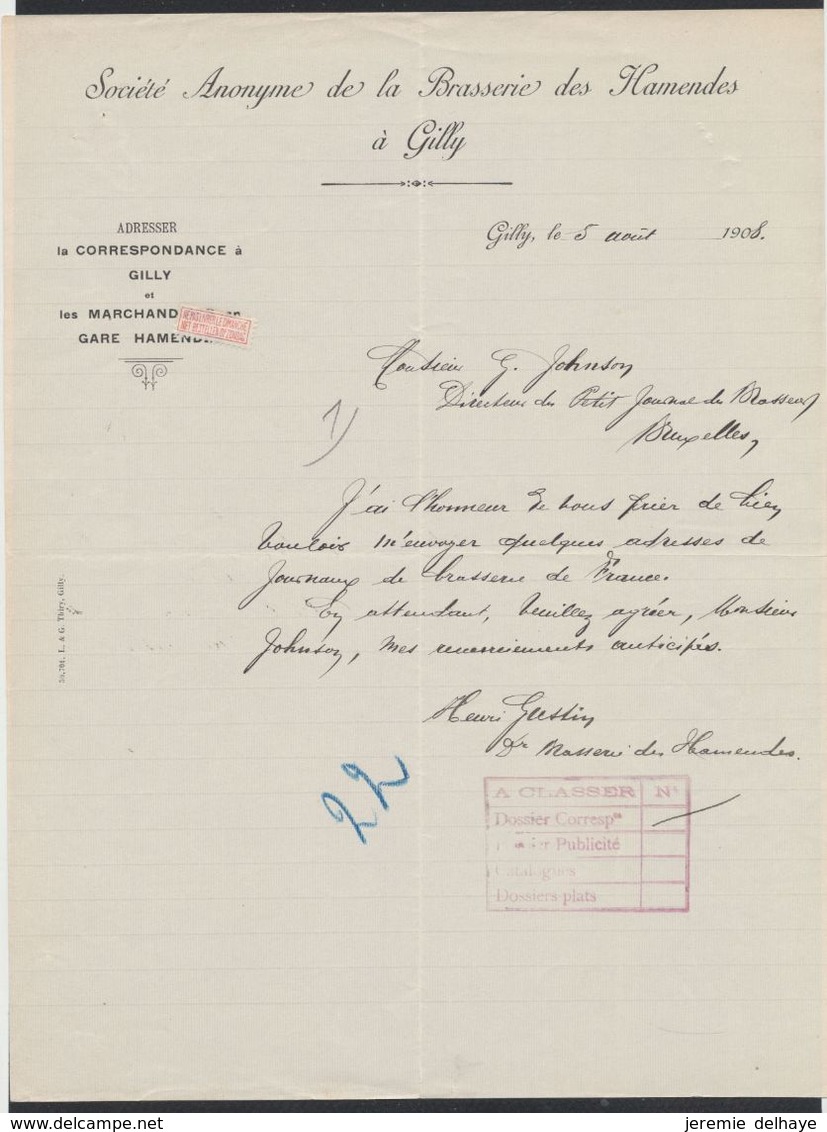 Société Anonyme de la Brasserie des Hamendes
à Gilly
Gilly, le 5 août 1908.
ADRESSER
la CORRESPONDANCE à
GILLY
et
les MARCHAND
GARE HAMENDE
NE PAS LIVRER LE DIMANCHE
NIET BESTELLEN OP ZONDAG
Monsieur G. Johnson
Directeur du Petit Journal du Brasseur
Bruxelles,
1)
J'ai l'honneur de vous prier de bien
vouloir m'envoyer quelques adresses de
Journaux de brasserie de France.
En attendant, veuillez agréer, Monsieur
Johnson, mes remerciements anticipés.
Henri Gustin
Dr Brasserie des Hamendes.
L. & G. Thiry, Gilly.
22
A CLASSER N°
Dossier Correspce
Publicité
Catalogues
Dossiers plats
jeremie delhaye